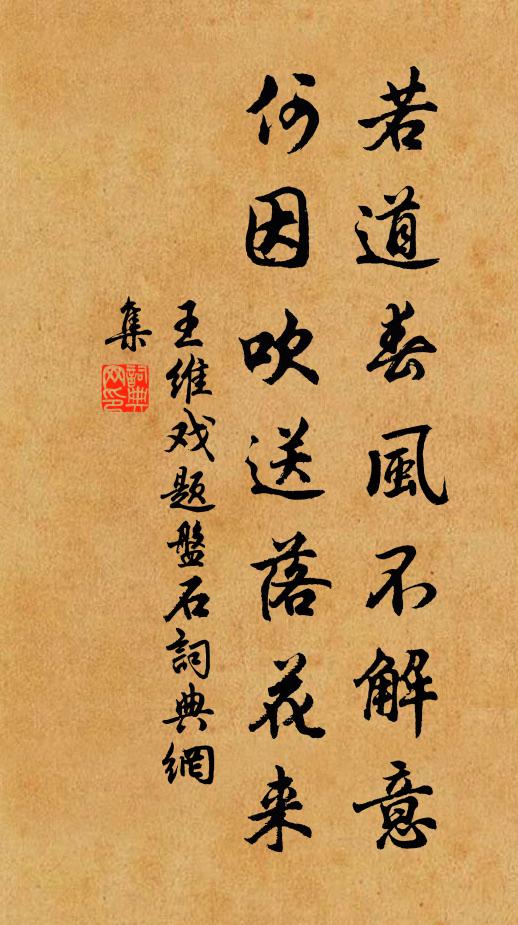 若道春風不解意
何因吹送落花来
王维戏题盤石詞典網
集
詞典
网印